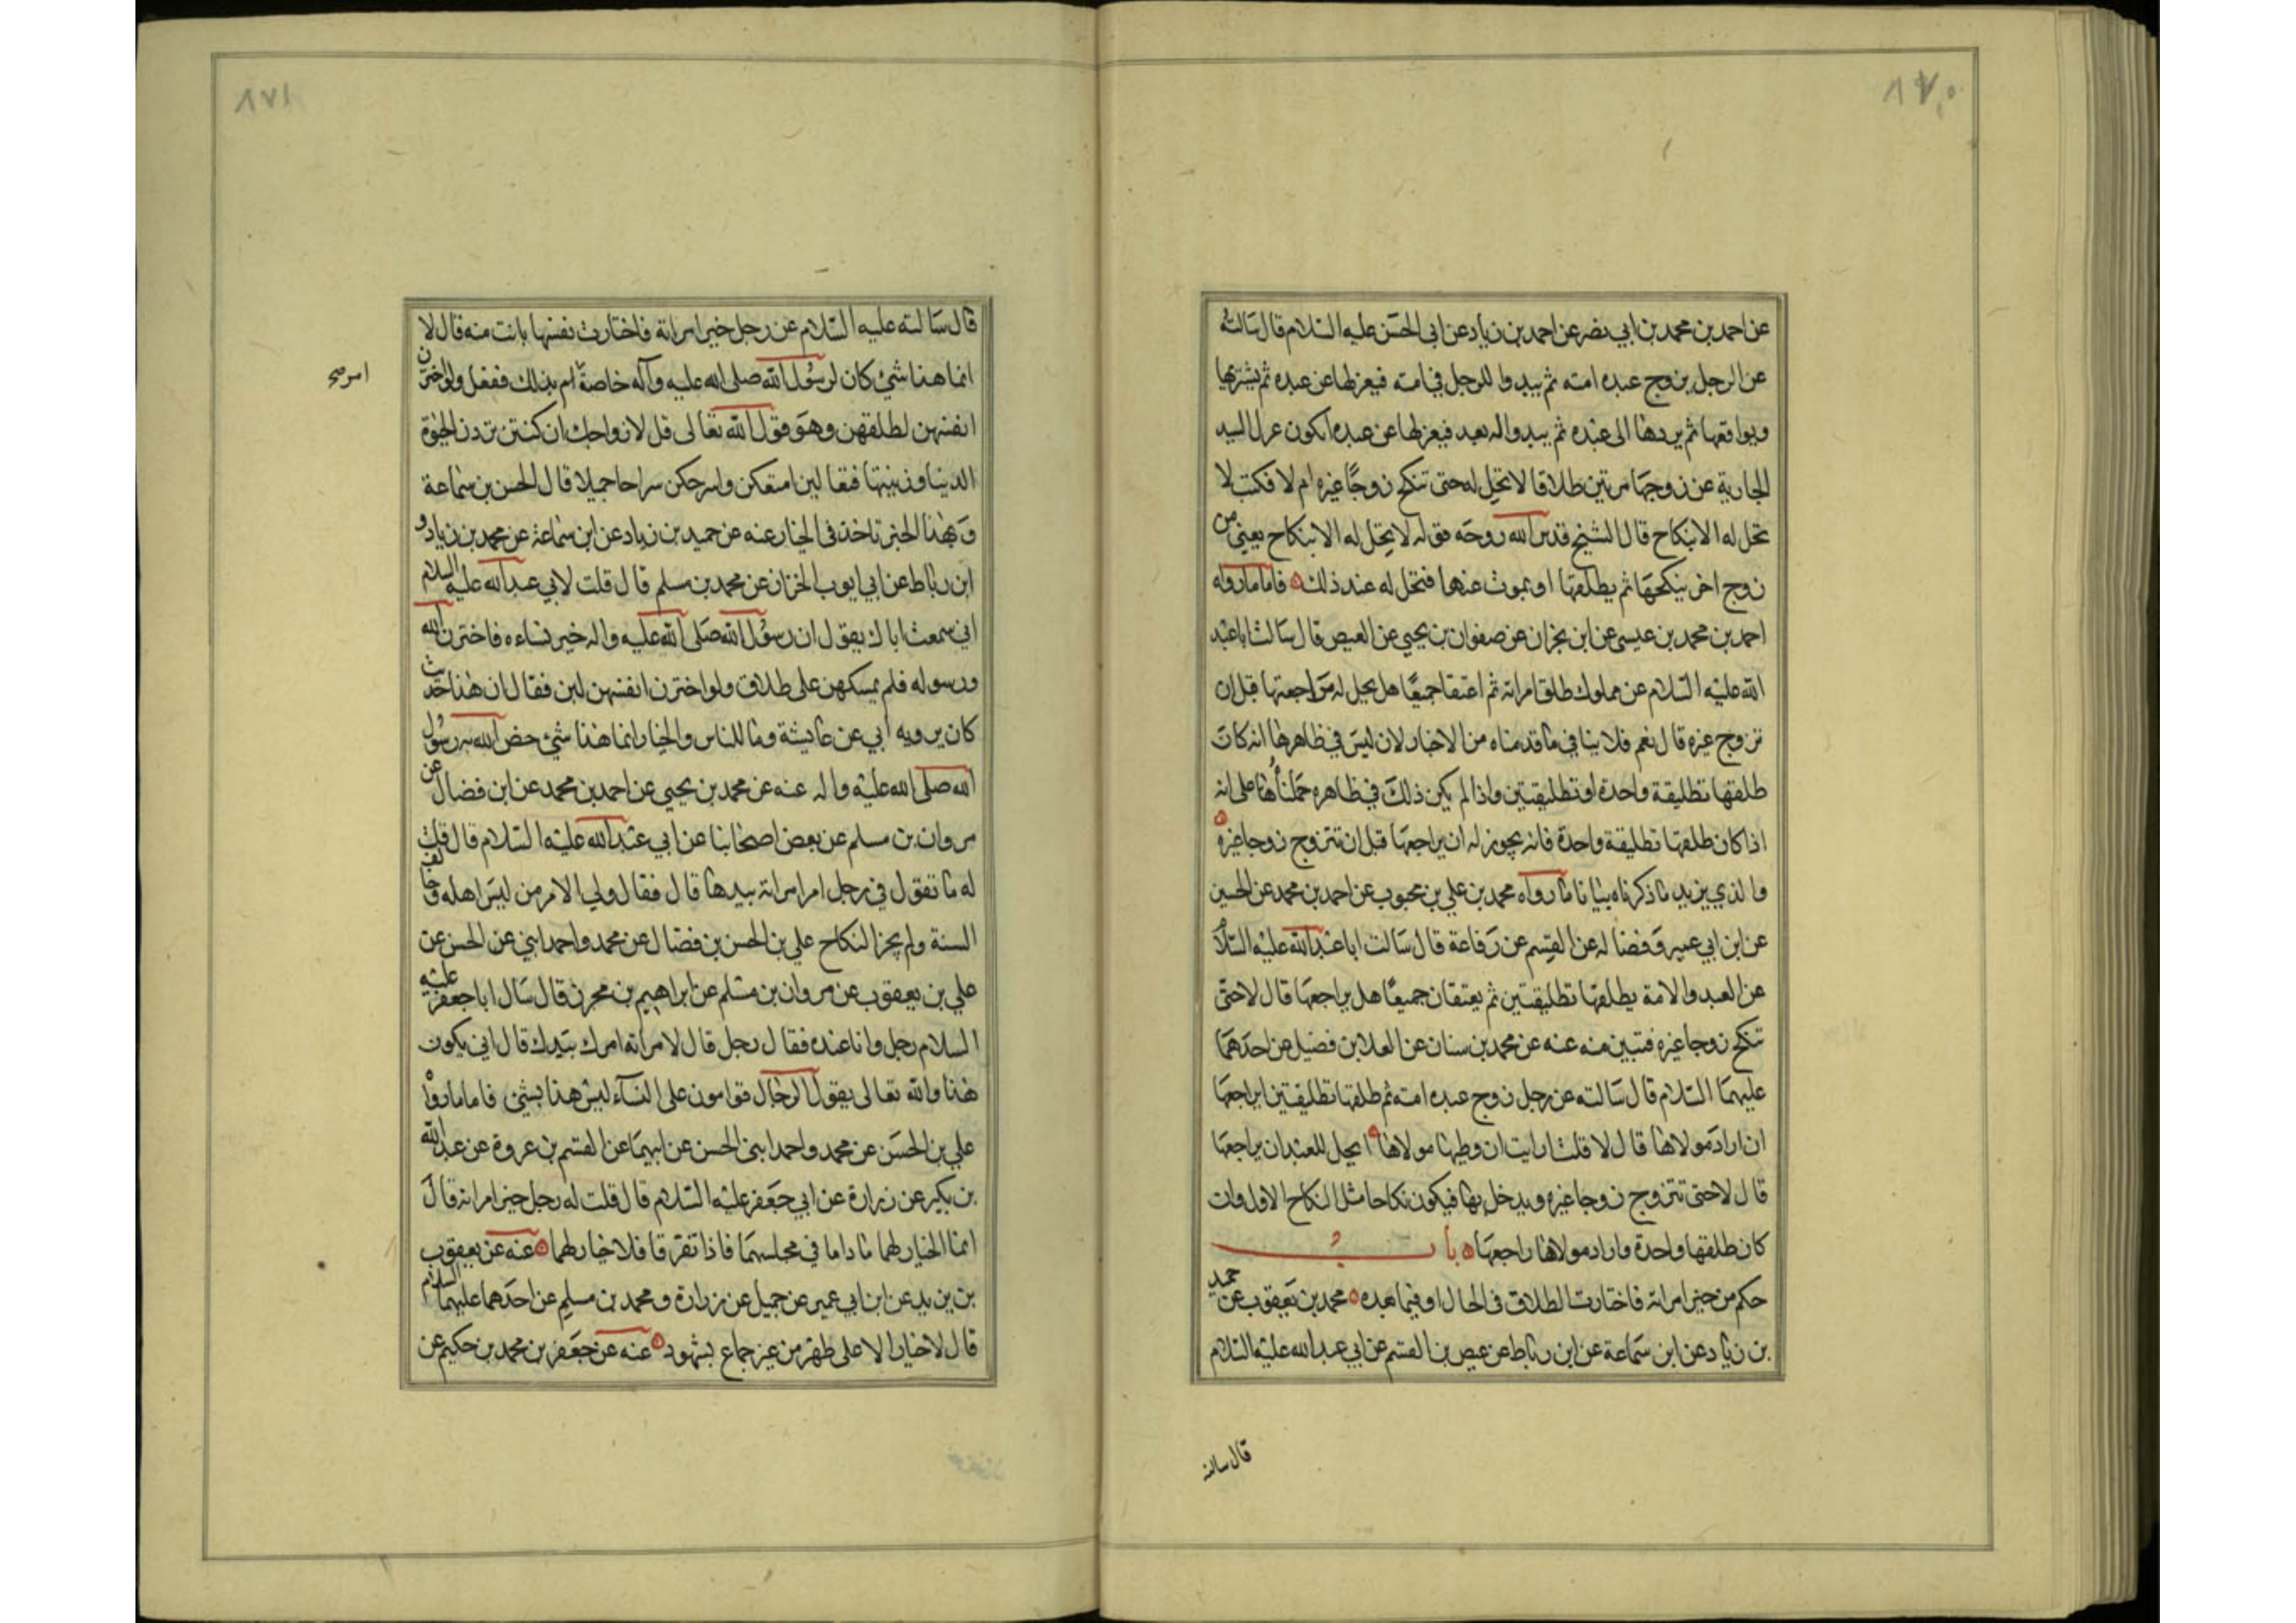 ٨٧٠
عن احمد بن محمد بن ابي نصر عن احمد بن زياد عن ابى الحسن عليه السلام قال سالته
عن الرجل يزوج عبده امته ثم يبدوا للرجل في امته فيعزلها عن عبده ثم يشتريها
ويواقعها ثم يردها الى عبده ثم يبدو اله بعد فيعزلها عن عبده ايكون عزل السيد
الجارية عن زوجها مرتين طلاقا لا تحل له حتى تنكح زوجًا غيره ام لا فكتب لا
تحل له الا بنكاح قال الشيخ قدس الله روحه قوله لا يحل له الا بنكاح يعني من
زوج اخر ينكحها ثم يطلقها او يموت عنها فتحل له عند ذلك فاما ما رواه
احمد بن محمد بن عيسى عن ابن نجران عن صفوان بن يحيى عن العيص قال سالت ابا عبد
الله عليه السلام عن مملوك طلق امراته ثم اعتقا جميعًا هل يحل له مراجعتها قبل ان
تزوج غيره قال نعم فلا ينافي ما قدمناه من الاخبار لان ليس في ظاهرها انه كان
طلقها تطليقة واحدة او تطليقتين واذا لم يكن ذلك في ظاهره حملناها على انه
اذا كان طلقها تطليقة واحدة فانه يجوز له ان يراجعها قبل ان تتزوج زوجا غيره
والذي يزيد ما ذكرناه بيانا ما رواه محمد بن علي بن محبوب عن احمد بن محمد عن الحسين
عن ابن ابي عمير وفضاله عن القسم عن رفاعة قال سالت ابا عبد الله عليه السلام
عن العبد والامة يطلقها تطليقتين ثم يعتقان جميعًا هل يراجعها قال لا حتى
تنكح زوجا غيره فتبين منه عنه عن محمد بن سنان عن العلا بن فضيل عن احدهما
عليهما السلام قال سالته عن رجل زوج عبده امته ثم طلقها تطليقتين ايراجعها
ان اراد مولاها قال لا قلت ارايت ان وطيها مولاها ايحل للعبد ان يراجعها
قال لا حتى تتزوج زوجا غيره ويدخل بها فيكون نكاحا مثل النكاح الاول وان
كان طلقها واحدة واراد مولاها راجعها باب
حكم من خير امراته فاختارت الطلاق في الحال او فيما بعده محمد بن يعقوب عن حميد
بن زياد عن ابن سماعة عن ابن رباط عن عيص بن القسم عن ابي عبد الله عليه السلام
قال سالته
٨٧١
قال سالته عليه السلام عن رجل خير امراته فاختارت نفسها بانت منه قال لا
انما هذا شئ كان لرسول الله صلى الله عليه وآله خاصة ام بذلك ففعل ولو اخترن
امر صح
انفسهن لطلقهن وهو قول الله تعالى قل لازواجك ان كنتن تردن الحيوة
الدنيا وزينتها فتعالين امتعكن واسرحكن سراحا جميلا قال الحسن بن سماعة
وبهذا الخبر ناخذ في الخيار عنه عن حميد بن زياد عن ابن سماعة عن محمد بن زياد و
ابن رباط عن ابي ايوب الخزاز عن محمد بن مسلم قال قلت لابي عبد الله عليه السلام
اني سمعت اباك يقول ان رسول الله صلى الله عليه واله خير نساءه فاخترن الله
ورسوله فلم يمسكهن على طلاق ولو اخترن انفسهن لبن فقال ان هذا حديث
كان يرويه ابي عن عايشة وما للناس والخيار انما هذا شئ خص الله به رسول
الله صلى الله عليه واله عنه عن محمد بن يحيى عن احمد بن محمد عن ابن فضال عن
مروان بن مسلم عن بعض اصحابنا عن ابي عبد الله عليه السلام قال قلت
له ما تقول في رجل امر امراته بيدها قال فقال ولي الامر من ليس اهله وخالف
السنة ولم يجز النكاح علي بن الحسن بن فضال عن محمد واحمد ابني عن الحسن عن
علي بن يعقوب عن مروان بن مسلم عن ابراهيم بن محرز قال سال ابا جعفر عليه
السلام رجل وانا عنده فقال رجل قال لامراته امرك بيدك قال انى يكون
هذا والله تعالى يقول الرجال قوامون على النساء ليس هذا بشئ فاما ما رواه
علي بن الحسن عن محمد واحمد ابنى الحسن عن ابيهما عن القسم بن عروة عن عبد الله
بن بكير عن زرارة عن ابي جعفر عليه السلام قال قلت له رجل خير امراته قال
انما الخيار لهما ما داما في مجلسهما فاذا تفرقا فلا خيار لهما عنه عن يعقوب
بن يزيد عن ابن ابي عمير عن جميل عن زرارة ومحمد بن مسلم عن احدهما عليهما السلام
قال لا خيار الا على طهر من غير جماع بشهود عنه عن جعفر بن محمد بن حكيم عن